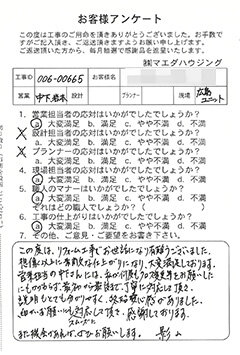 お客様アンケート
この度は工事のご用命を頂きありがとうございます。お手数で
すがご記入頂き、ご返送頂きますようお願い申し上げます。
ご返送頂いた方から、毎月抽選で感謝品を進呈いたします。
㈱マエダハウジング
工事ID 006-00665 お客様名
営業 中下 岩本 設計 プランナー 現場 広島ユニット
1. 営業担当者の応対はいかがでしたでしょうか?
a. 大変満足 b. 満足 c. やや不満 d. 不満
2. 設計担当者の応対はいかがでしたでしょうか?
a. 大変満足 b. 満足 c. やや不満 d. 不満
3. プランナーの応対はいかがでしたでしょうか?
a. 大変満足 b. 満足 c. やや不満 d. 不満
4. 現場担当者の応対はいかがでしたでしょうか?
a. 大変満足 b. 満足 c. やや不満 d. 不満
5. 職人のマナーはいかがでしたでしょうか?
a. 大変満足 b. 満足 c. やや不満 d. 不満
それはどの職人でしょうか?( )
6. 工事の仕上がりはいかがでしたでしょうか?
a. 大変満足 b. 満足 c. やや不満 d. 不満
7. その他、ご意見・ご要望をお書き下さい。
この度は、リフォーム工事でお世話になり有難うございました。
想像以上に素敵な仕上がりになり、大変満足しております。
営業担当の中下さんには、私が何度もプラン変更をお願いした
にもかかわらず、最初から最後まで丁寧に対応して頂き、
説明もとても分かりやすく、終始安心感がありました。
細かいお願いにも対応して頂き、感謝しております。
また機会があれば、ぜひお願いします。